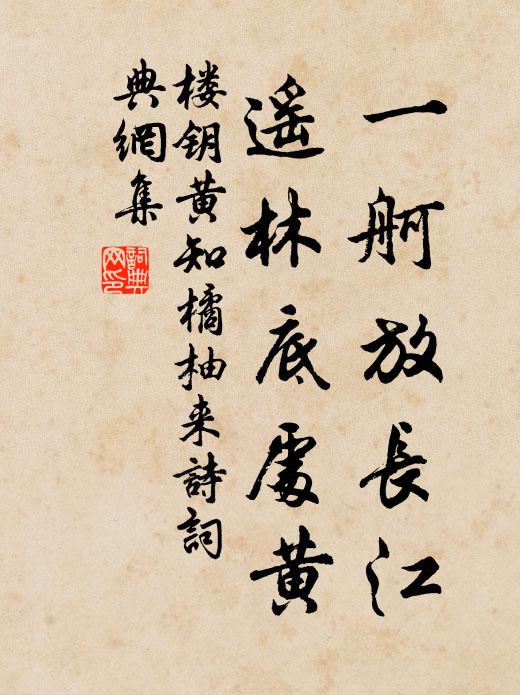 一舸放長江
遥林底處黄
楼钥黄知橘柚来詩詞
典網集
詞典
网印